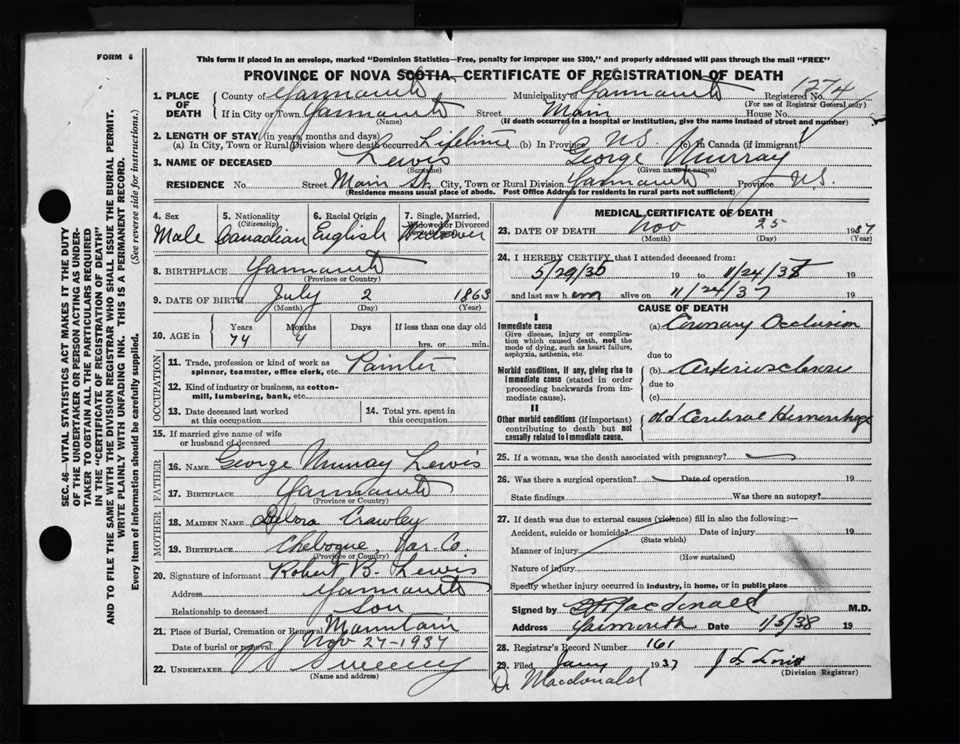 FORM 6
This form if placed in an envelope, marked "Dominion Statistics—Free, penalty for improper use $300," and properly addressed will pass through the mail "FREE"
PROVINCE OF NOVA SCOTIA, CERTIFICATE OF REGISTRATION OF DEATH
1. PLACE OF DEATH
County of Yarmouth Municipality of Yarmouth Registered No. 1274
(For use of Registrar General only)
If in City or Town Yarmouth Street Main House No.
(Name) (If death occurred in a hospital or institution, give the name instead of street and number)
2. LENGTH OF STAY (in years, months and days)
(a) In City, Town or Rural Division where death occurred Lifetime (b) In Province N.S. (c) in Canada (if immigrant)
3. NAME OF DECEASED Lewis George Murray
(Surname) (Given name or names)
RESIDENCE No. Street Main St. City, Town or Rural Division Yarmouth Province N.S.
(Residence means usual place of abode. Post Office Address for residents in rural parts not sufficient)
4. Sex Male
5. Nationality (Citizenship) Canadian
6. Racial Origin English
7. Single, Married, Widowed or Divorced Widower
8. BIRTHPLACE Yarmouth
(Province or Country)
9. DATE OF BIRTH July 2 1863
(Month) (Day) (Year)
10. AGE in Years Months Days If less than one day old
74 4 hrs. or min.
OCCUPATION
11. Trade, profession or kind of work as spinner, teamster, office clerk, etc. Painter
12. Kind of industry or business, as cotton-mill, lumbering, bank, etc.
13. Date deceased last worked at this occupation
14. Total yrs. spent in this occupation
15. If married give name of wife or husband of deceased
FATHER
16. NAME George Murray Lewis
17. BIRTHPLACE Yarmouth
(Province or Country)
MOTHER
18. MAIDEN NAME Debora Crawley
19. BIRTHPLACE Chebogue, Yar. Co.
(Province or Country)
20. Signature of informant Robert B. Lewis
Address Yarmouth
Relationship to deceased Son
21. Place of Burial, Cremation or Removal Mountain
Date of burial or removal Nov 27-1937
22. UNDERTAKER Sweeny
(Name and address)
MEDICAL CERTIFICATE OF DEATH
23. DATE OF DEATH Nov 25 1937
(Month) (Day) (Year)
24. I HEREBY CERTIFY that I attended deceased from:
5/29/35 19 to 11/24/37 19
and last saw h em alive on 11/24/37 19
CAUSE OF DEATH
I
Immediate cause
Give disease, injury or complication which caused death, not the mode of dying, such as heart failure, asphyxia, asthenia, etc.
(a) Coronary Occlusion
due to
Morbid conditions, if any, giving rise to immediate cause (stated in order proceeding backwards from immediate cause).
(b) Arteriosclerosis
due to
(c)
II
Other morbid conditions (if important) contributing to death but not causally related to immediate cause.
old Cerebral Hemorrhage
25. If a woman, was the death associated with pregnancy?
26. Was there a surgical operation? Date of operation 19
State findings Was there an autopsy?
27. If death was due to external causes (violence) fill in also the following:—
Accident, suicide or homicide? Date of injury 19
(State which)
Manner of injury
(How sustained)
Nature of injury
Specify whether injury occurred in industry, in home, or in public place
Signed by Macdonald M.D.
Address Yarmouth Date 1/5/38 19
28. Registrar's Record Number 161
29. Filed Jany 1937
(Division Registrar)
Dr Macdonald
SEC. 46—VITAL STATISTICS ACT MAKES IT THE DUTY
OF THE UNDERTAKER OR PERSON ACTING AS UNDER-
TAKER TO OBTAIN ALL THE PARTICULARS REQUIRED
IN THE "CERTIFICATE OF REGISTRATION OF DEATH"
AND TO FILE THE SAME WITH THE DIVISION REGISTRAR WHO SHALL ISSUE THE BURIAL PERMIT.
WRITE PLAINLY WITH UNFADING INK. THIS IS A PERMANENT RECORD.
Every item of information should be carefully supplied. (See reverse side for instructions.)